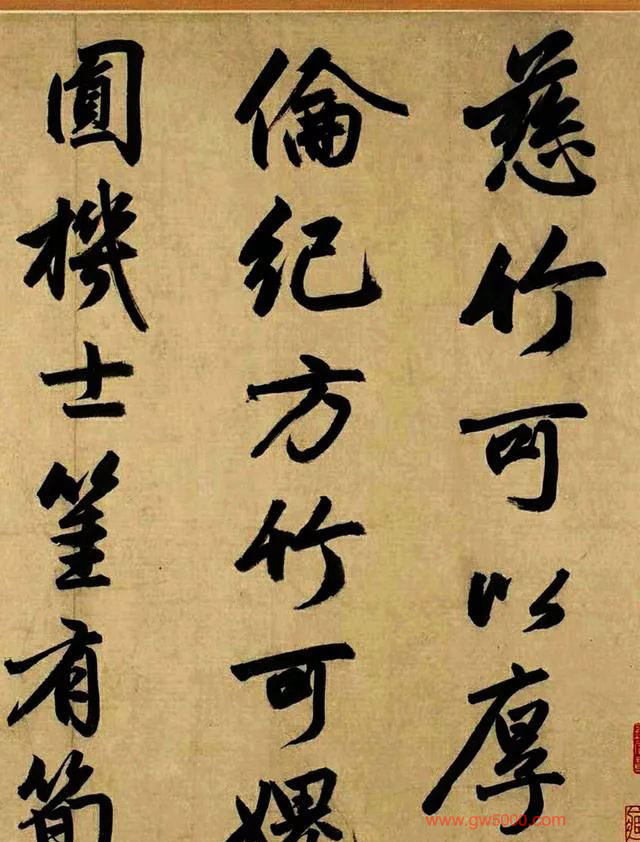 慈竹可以厚
倫紀方竹可媿
圓機士筀有
www.gw5000.com